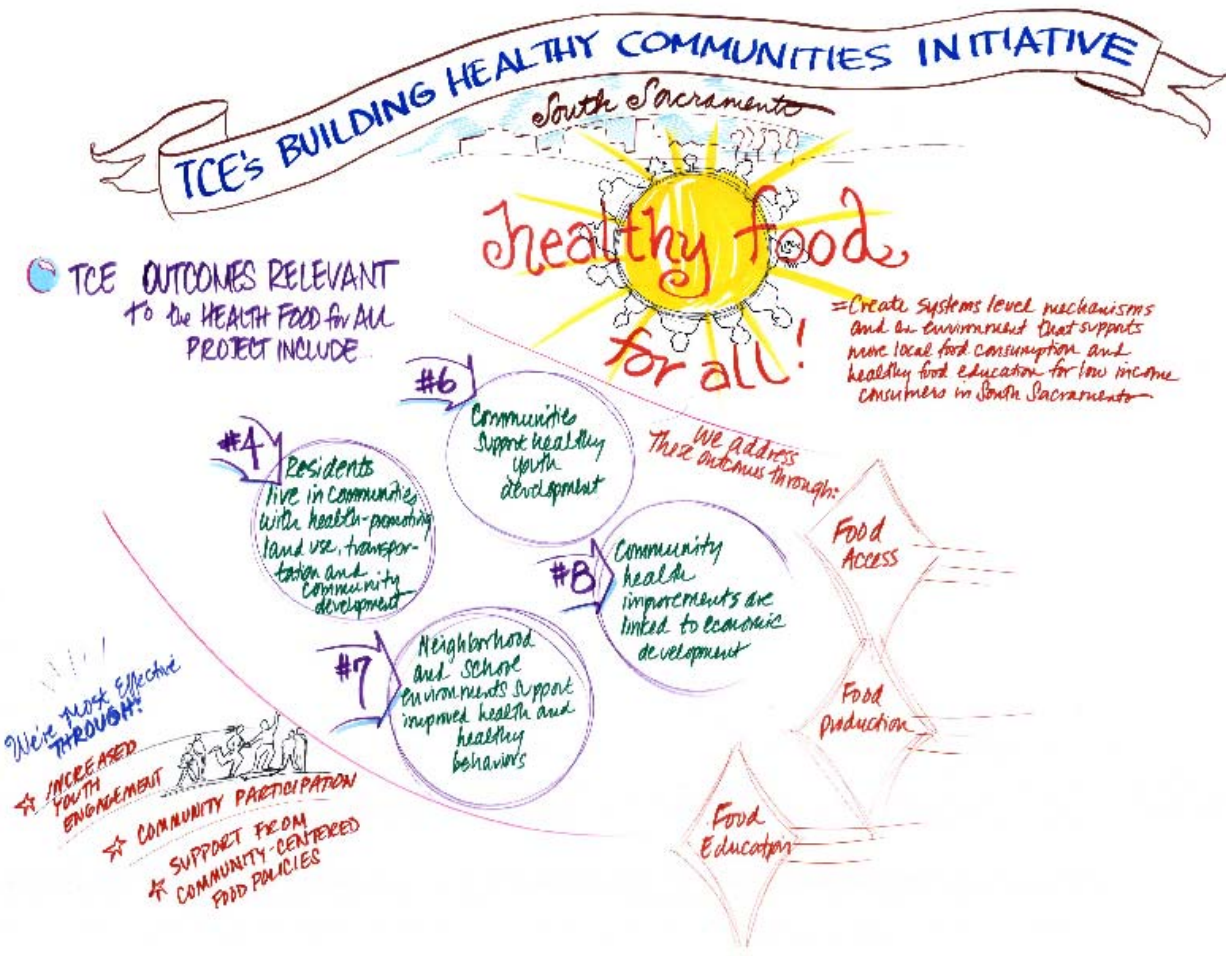 TCE's BUILDING HEALTHY COMMUNITIES INITIATIVE
South Sacramento
healthy food
for all!
= Create systems level mechanisms
and an environment that supports
more local food consumption and
healthy food education for low income
consumers in South Sacramento
TCE OUTCOMES RELEVANT
to the HEALTH FOOD for ALL
PROJECT INCLUDE
#6
Communities
support healthy
youth
development
#4
Residents
live in communities
with health-promoting
land use, transpor-
tation and
community
development
#8
Community
health
improvements are
linked to economic
development
#7
Neighborhood
and school
environments support
improved health and
healthy
behaviors
We address
These outcomes through:
Food
Access
Food
Production
Food
Education
We're most Effective
THROUGH:
INCREASED
YOUTH
ENGAGEMENT
COMMUNITY PARTICIPATION
SUPPORT FROM
COMMUNITY-CENTERED
FOOD POLICIES